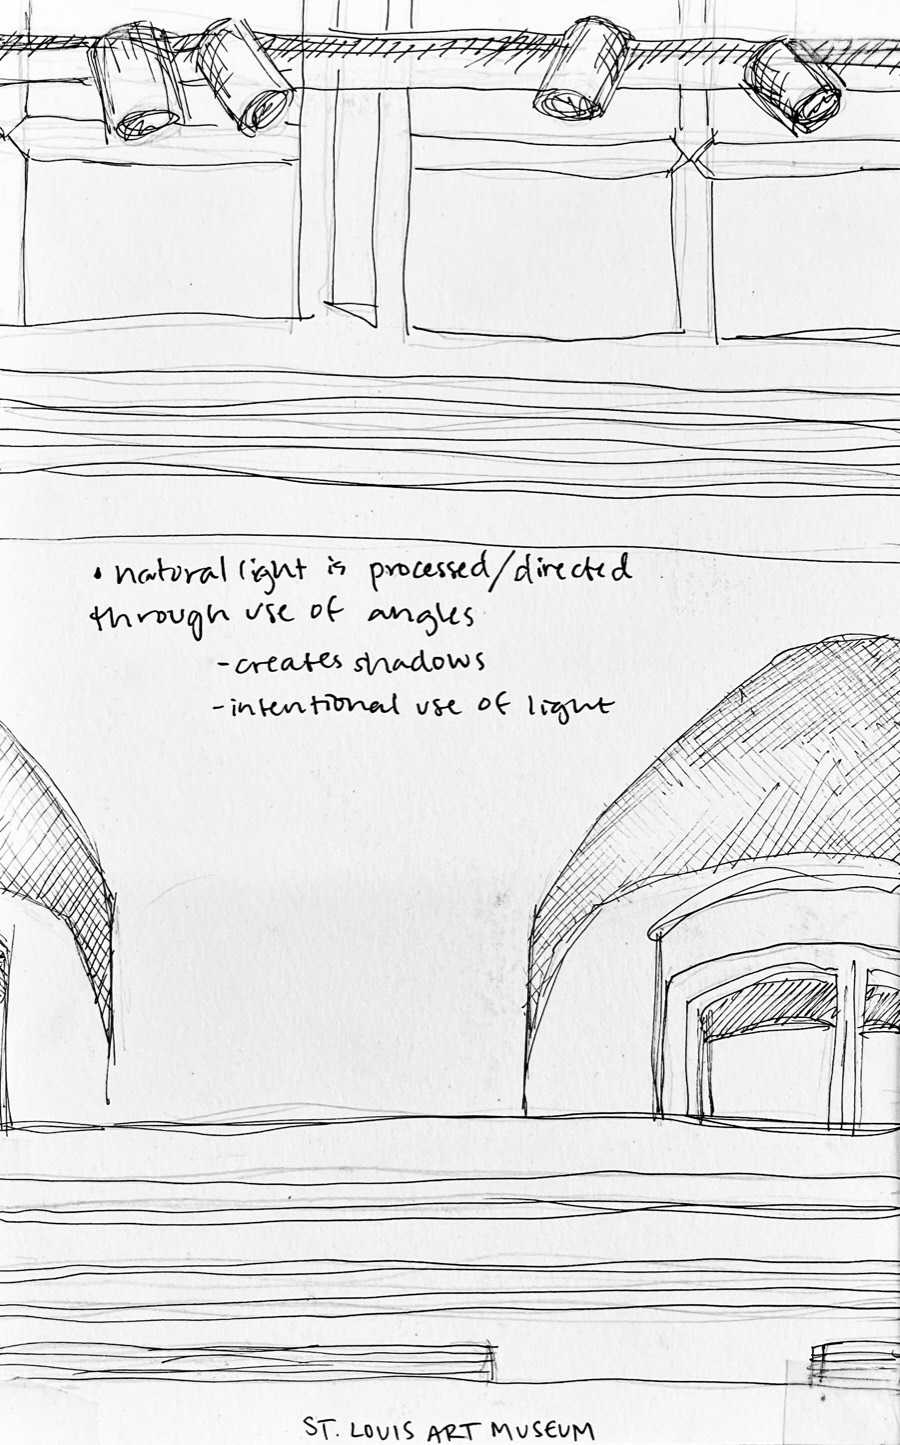 • natural light is processed/directed
through use of angles
-creates shadows
-intentional use of light
ST. LOUIS ART MUSEUM